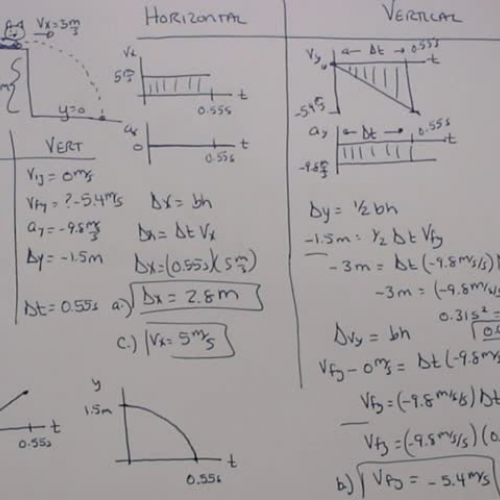 HORIZONTAL
VERTICAL
Vx=5m/s
y=0
Vx
5 m/s
t
0.55s
ax
0
t
0.55s
Vy
← Δt →
0.55s
t
-5.4 m/s
ay
← Δt →
0.55s
t
-9.8 m/s
VERT
Viy = 0 m/s
Vfy = ? -5.4 m/s
ay = -9.8 m/s
Δy = -1.5m
Δt = 0.55s
Δx = bh
Δx = Δt Vx
Δx = (0.55s)(5 m/s)
a.) Δx = 2.8m
c.) Vx = 5 m/s
Δy = 1/2 bh
-1.5m = 1/2 Δt Vfy
-3m = Δt (-9.8 m/s/s)
-3m = (-9.8 m/s/s
0.31s² =
ΔVy = bh
Vfy - 0 m/s = Δt (-9.8 m/s
Vfy = (-9.8 m/s/s) Δt
Vfy = (-9.8 m/s/s) (0.
b.) Vfy = -5.4 m/s
t
0.55s
y
1.5m
t
0.55s